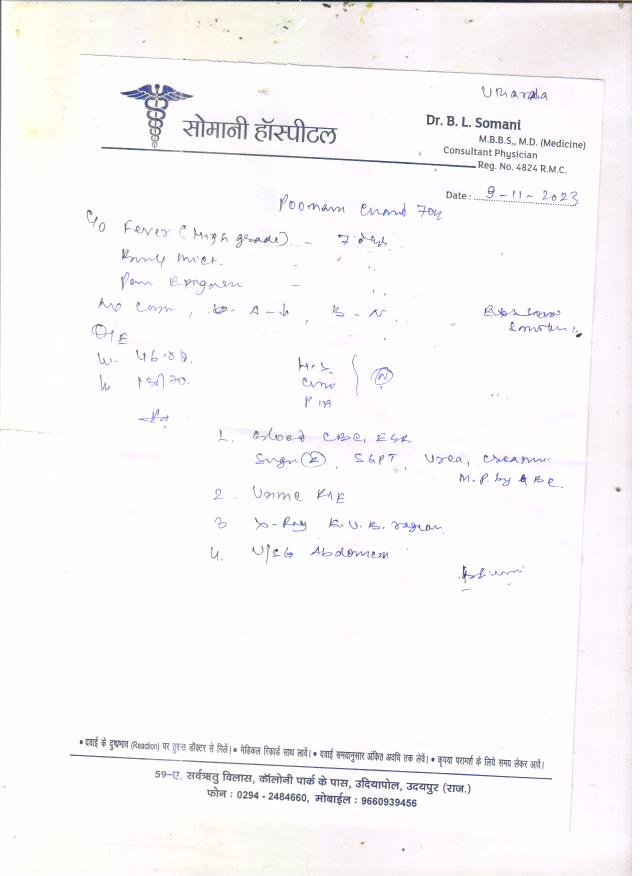 Umarda
सोमानी हॉस्पीटल
Dr. B. L. Somani
M.B.B.S., M.D. (Medicine)
Consultant Physician
Reg. No. 4824 R.M.C.
Date : 9-11-2023
Poonam Chand 70y
C/O Fever (High grade) - 7 days
Burning mict. - ,,
Pain Epigas - ,,
No Com , A-↓ , B-N.
O/E
W. 46.0
130/70.
P/A
N
1. Blood CBC, ESR
Sugar (R), SGPT, Urea, Creatinine
M.P. by QBC.
2. Urine R/E
3 X-Ray K.U.B. region
4. U/SG Abdomen
• दवाई के दुष्प्रभाव (Reaction) पर तुरन्त डॉक्टर से मिलें। • मेडिकल रिकार्ड साथ लावें। • दवाई समयानुसार अंकित अवधि तक लेवें। • कृपया परामर्श के लिये समय लेकर आवें।
59-ए, सर्वऋतु विलास, कॉलोनी पार्क के पास, उदियापोल, उदयपुर (राज.)
फोन : 0294 - 2484660, मोबाईल : 9660939456